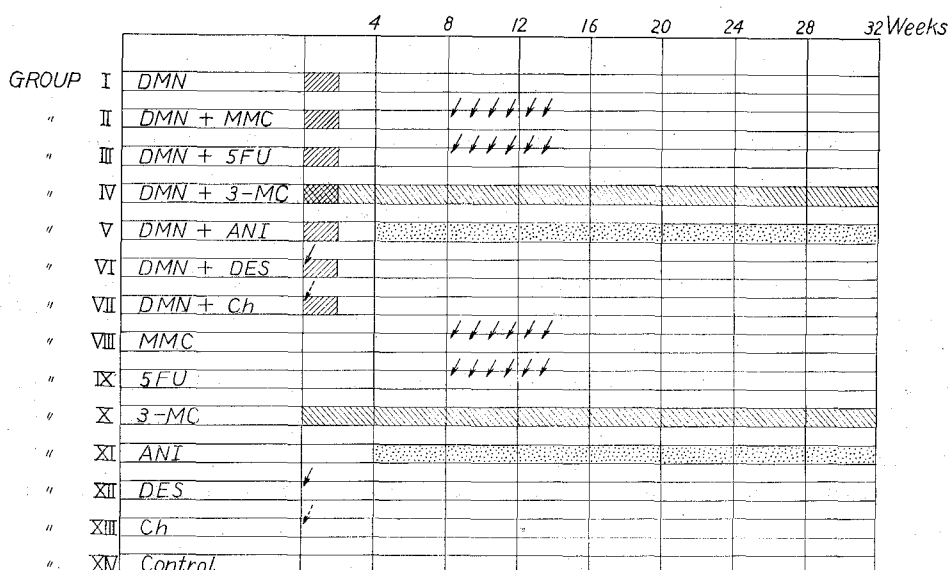 4 8 12 16 20 24 28 32 Weeks
GROUP I DMN
〃 II DMN + MMC
〃 III DMN + 5FU
〃 IV DMN + 3-MC
〃 V DMN + ANI
〃 VI DMN + DES
〃 VII DMN + Ch
〃 VIII MMC
〃 IX 5FU
〃 X 3-MC
〃 XI ANI
〃 XII DES
〃 XIII Ch
〃 XIV Control